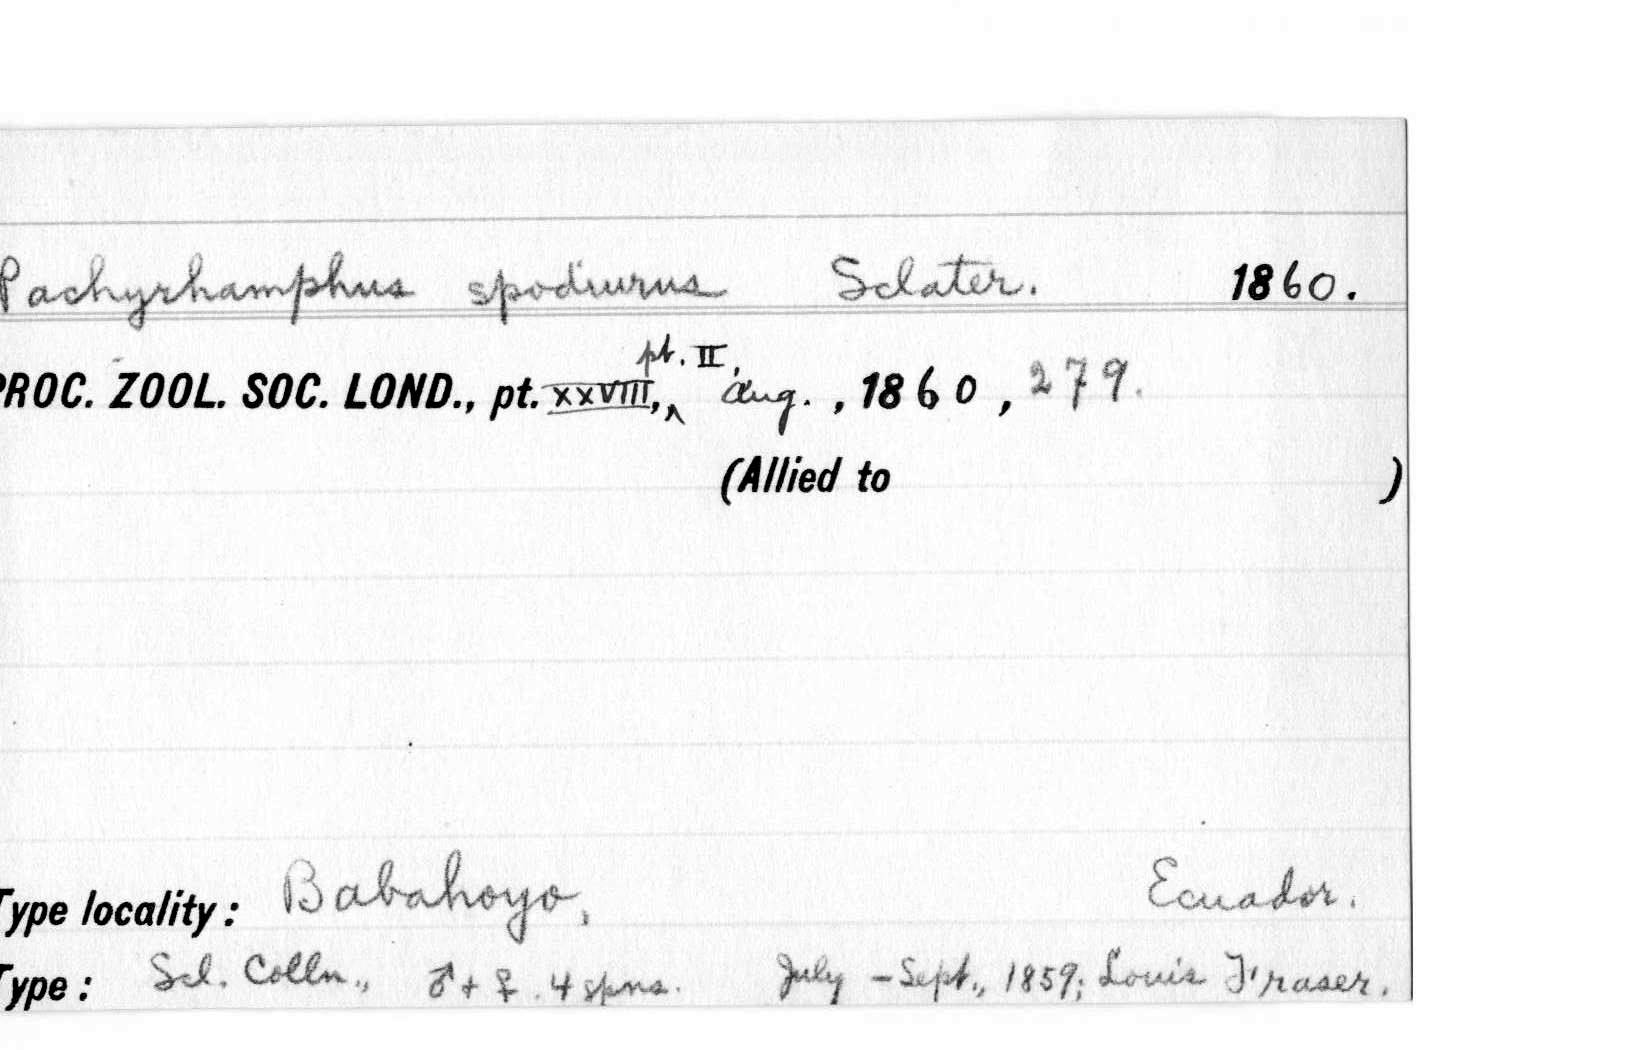 Pachyrhamphus spodiurus Sclater. 1860.
PROC. ZOOL. SOC. LOND., pt. XXVIII, ^ pt. II, Aug. , 1860 , 279.
(Allied to )
Type locality: Babahoyo, Ecuador.
Type: Scl. Colln., ♂ + ♀. 4 spms. July - Sept., 1859; Louis Fraser.